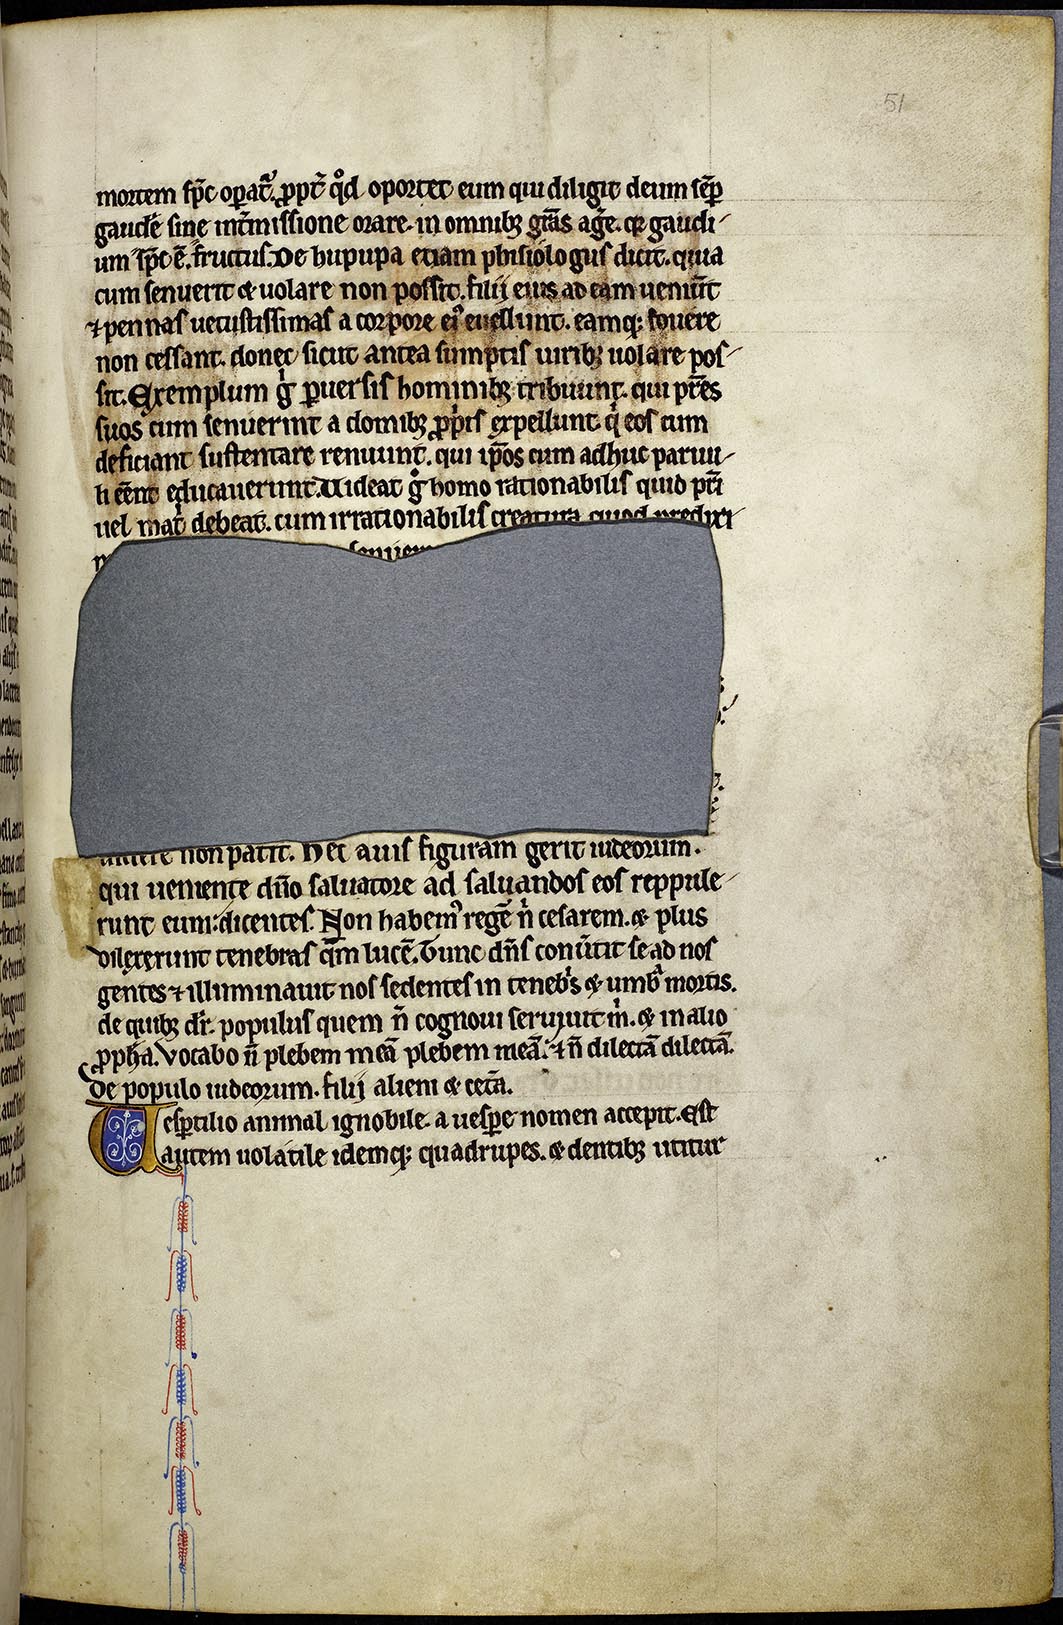 51
mortem sp̄c oꝑat᷑. ꝓpt᷑ qͦd oportet eum qui diligit deum sēꝑ
gaud̄e sine int᷑missione orare. in omnibꝫ gr̄as aḡe. qꝛ gaudi
um sp̄c ē. fructus. De hupupa etiam phisiologus dicit. quia
cum senuerit ⁊ uolare non possit. filij eius ad eam ueniūt
⁊ pennas uetustissimas a corpore eiꝰ euellunt. eamqꝫ fouere
non cessant. donec sicut antea sumptis uiribꝫ uolare pos
sit. Exemplum gͥ ꝑuersis hominibꝫ tribuunt. qui pr̄es
suos cum senuerint a domibꝫ ꝓpͥis expellunt. qͥ eos cum
deficiant sustentare renuunt. qui ip̄os cum adhuc paruu
li eēnt educauerunt. Uideat gͦ homo rationabilis quid pr̄i
uel mat͛ debeat. cum irrationabilis creatura quod predixi
non patit᷑. Hec auis figuram gerit iudeorum.
qui ueniente dn̄o saluatore ad saluandos eos reppule
runt eum: dicentes. Non habemꝰ regē n̄ cesarem. ⁊ plus
dilexerunt tenebras qͣm lucē. Tunc dn̄s conūtit se ad nos
gentes ⁊ illuminauit nos sedentes in tenebͥs ⁊ umbͣ mortis.
de quibꝫ dr̄. populus quem n̄ cognoui seruiuit mͥ. ⁊ in alio
ꝓph̄a. Vocabo n̄ plebem meā plebem meā. ⁊ n̄ dilectā dilectā.
De populo iudeorum. filij alieni ⁊ cet̄a.
Uesꝑtilio animal ignobile. a uesꝑe nomen accepit. Est
autem uolatile idemqꝫ quadrupes. ⁊ dentibꝫ utitur